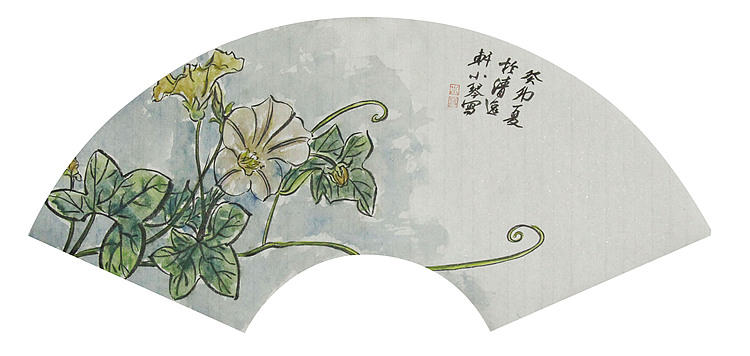 癸卯夏
於清逸
轩小琴写